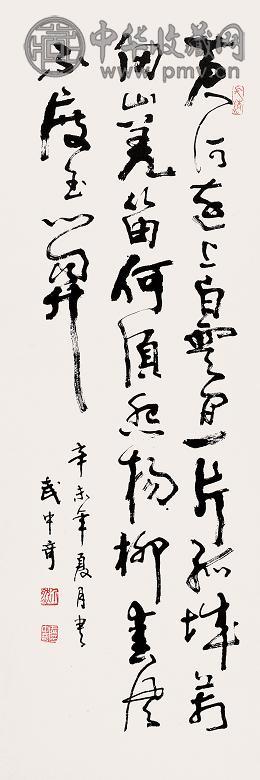 中华收藏网
www.pmv.cn
黄河远上白云间一片孤城万
仞山羌笛何须怨杨柳春风
不度玉门关
辛未年夏月书
武中奇